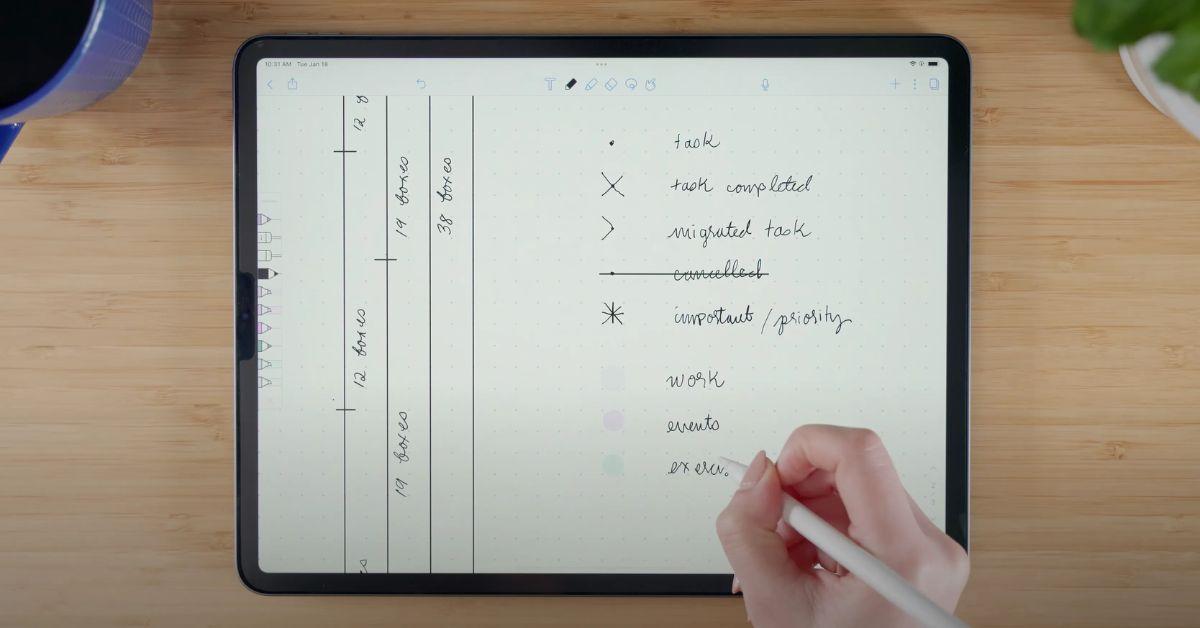 10:31 AM Tue Jan 18
12
19 boxes
38 boxes
12 boxes
19 boxes
• task
× task completed
> migrated task
• cancelled
* important / priority
work
events
exerci